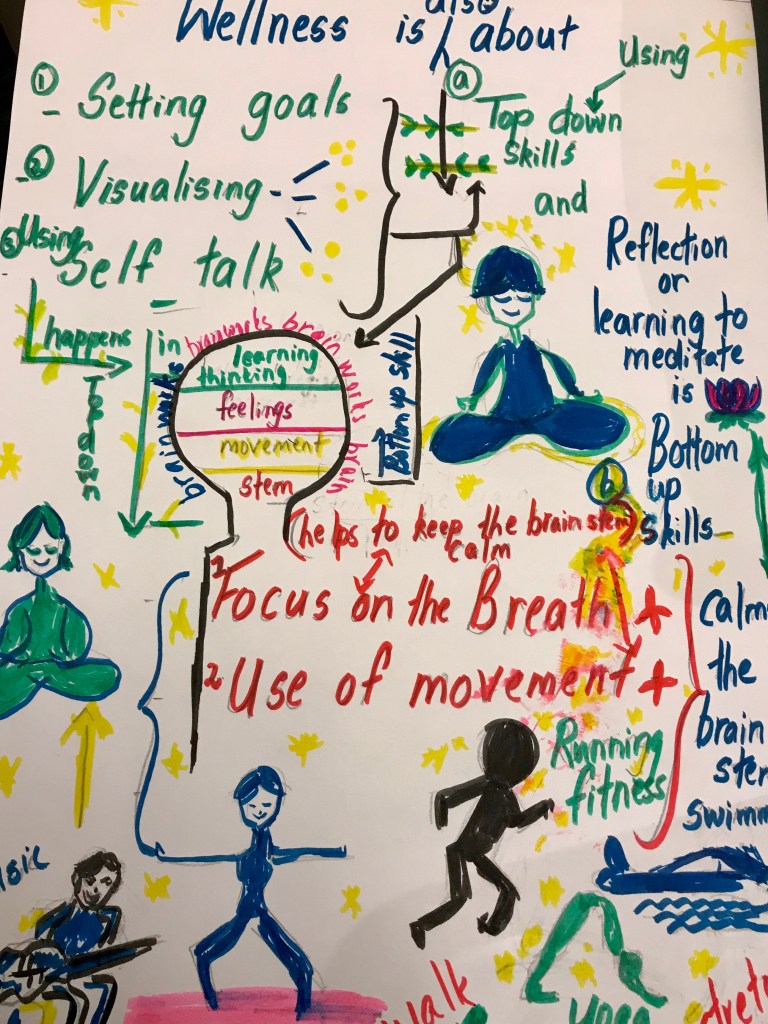 also
Wellness is about
① Setting goals
② Visualising
③ Using
Self talk
happens
Top down
in
ⓐ Using
Top down
skills
and
Reflection
or
learning to
meditate
is
Bottom
ⓑ up
skills
brainworks brainworks brain works brain
learning
thinking
feelings
movement
stem
Bottom up skill
(helps to keep the brain stem)
calm
1. Focus on the Breath +
2. Use of movement +
Running
fitness
calm
the
brain
swimm
yoga